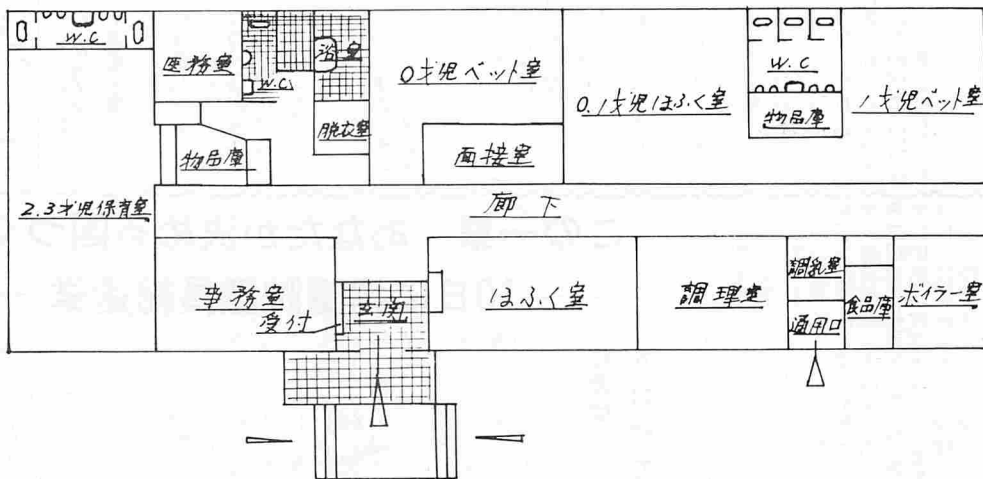 W.C
医務室
W.C
浴室
脱衣室
物品庫
0才児ベット室
面接室
0.1才児ほふく室
W.C
物品庫
1才児ベット室
2.3才児保育室
廊下
事務室
受付
玄関
ほふく室
調理室
調乳室
通用口
食品庫
ボイラー室